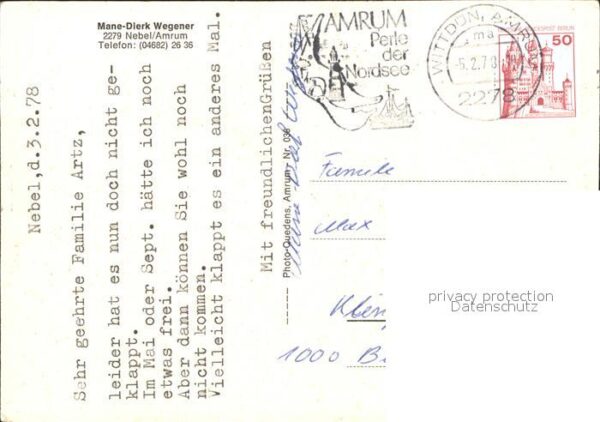 Mane-Dierk Wegener
2279 Nebel/Amrum
Telefon: (04682) 26 36
Nebel,d.3.2.78
Sehr geehrte Familie Artz,
leider hat es nun doch nicht ge-
klappt.
Im Mai oder Sept. hätte ich noch
etwas frei.
Aber dann können Sie wohl noch
nicht kommen.
Vielleicht klappt es ein anderes Mal.
Mit freundlichen Grüßen
Photo-Quedens, Amrum, Nr. 036
AMRUM
Perle
der
Nordsee
WITTDÜN, AMRUM
ma
-5.2.78
2278
POST BERLIN
50
Familie
Max
1000 B
privacy protection
Datenschutz